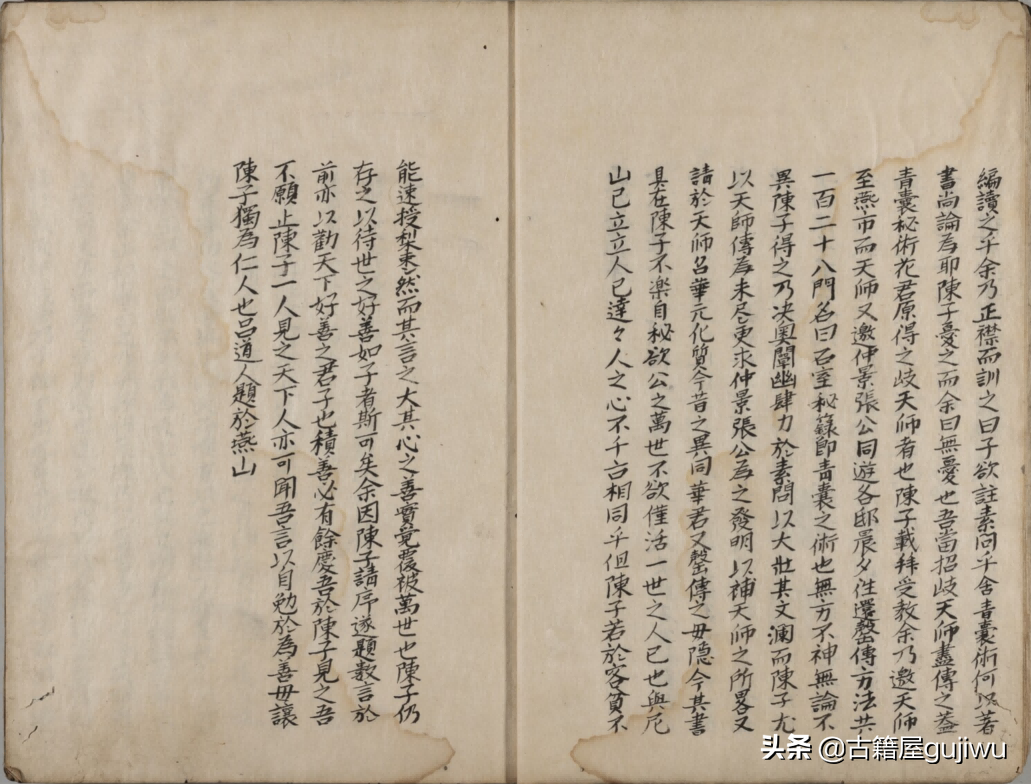 編讀之乎余乃正襟而訓之曰子欲註素问乎舍青囊術何以著
書尚論為耶陳子憂之而余曰無憂也吾當招歧天師盡傳之蓋
青囊秘術花君原得之歧天師者也陳子載拜受教余乃邀天師
至燕市而天師又邀仲景張公同遊各邸晨夕往還罄傳方法共
一百二十八門名曰石室秘籙即青囊之術也無方不神無論不
異陳子得之乃决奥闡幽肆力於素問以大壯其文瀾而陳子尤
以天師傳為未尽更求仲景張公為之發明以補天師之所畧又
請於天師召華元化質今昔之異同華君又罄傳之毋隐今其書
具在陳子不楽自秘欲公之萬世不欲僅活一世之人已也與尼
山已立立人已達々人之心不千古相同乎但陳子若於客貧不
能速授梨棗然而其言之大其心之善實竟覆被萬世也陳子仍
存之以待世之好善如子者斯可矣余因陳子請序遂題数言於
前亦以勸天下好善之君子也積善必有餘慶吾於陳子見之吾
不願止陳子一人見之天下人亦可聞吾言以自勉於為善毋讓
陳子獨為仁人也呂道人題於燕山
头条 @古籍屋gujiwu